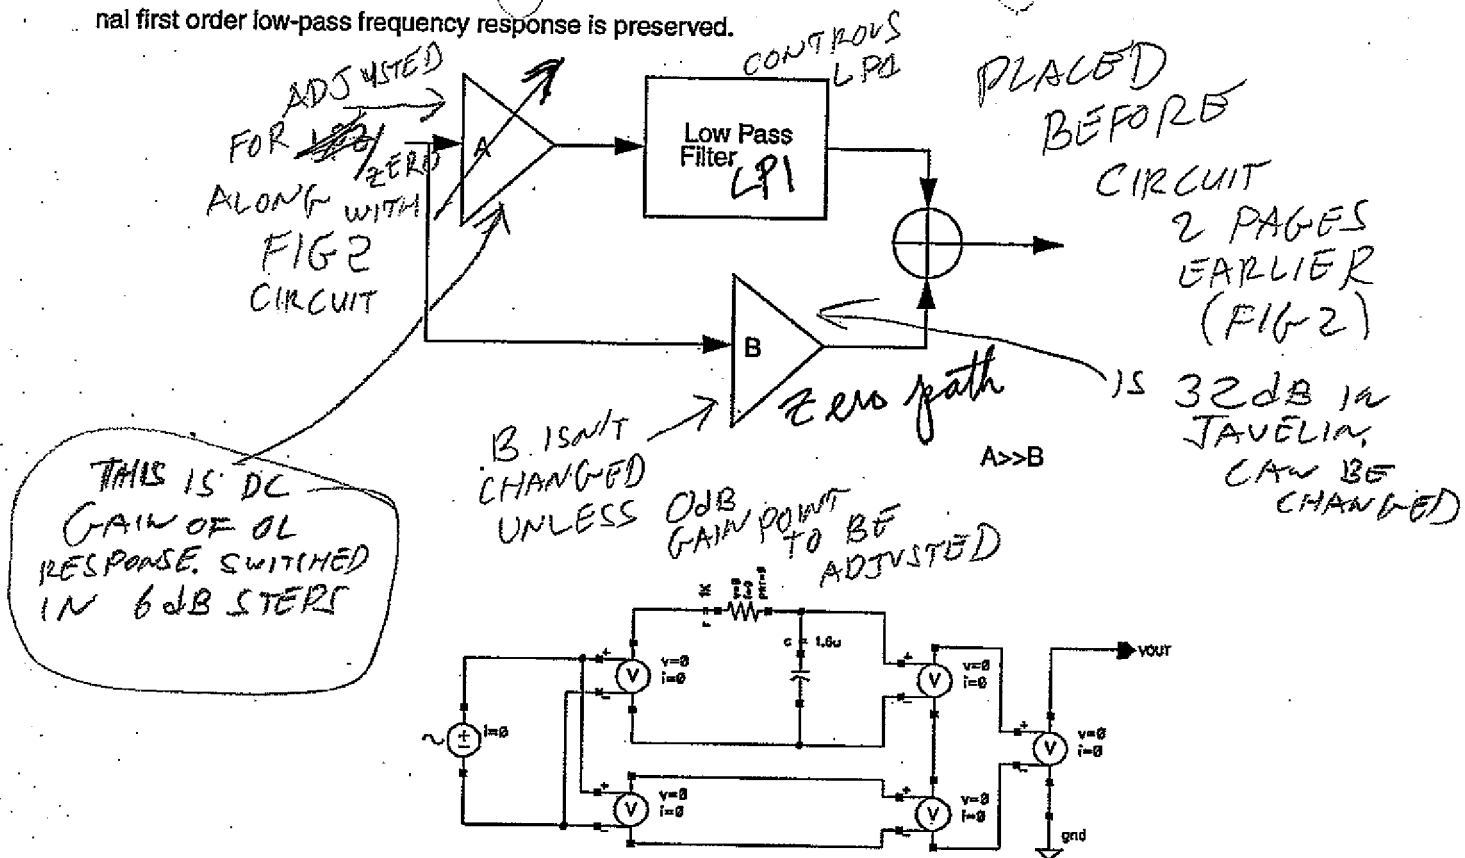 nal first order low-pass frequency response is preserved.
ADJUSTED
FOR
ZERO
ALONG WITH
FIG 2
CIRCUIT
A
CONTROLS
LP1
Low Pass
Filter
LP1
PLACED
BEFORE
CIRCUIT
2 PAGES
EARLIER
(FIG 2)
B
Zero path
IS 32dB in
JAVELIN.
CAN BE
CHANGED
A>>B
B ISN'T
CHANGED
UNLESS 0dB
GAIN POINT
TO BE
ADJUSTED
THIS IS DC
GAIN OF OL
RESPONSE. SWITCHED
IN 6dB STEPS
1K
v=0
i=0
c = 1.6u
+
v=0
i=0
-
+
v=0
i=0
-
VOUT
i=0
+
v=0
i=0
-
+
v=0
i=0
-
+
v=0
i=0
-
gnd